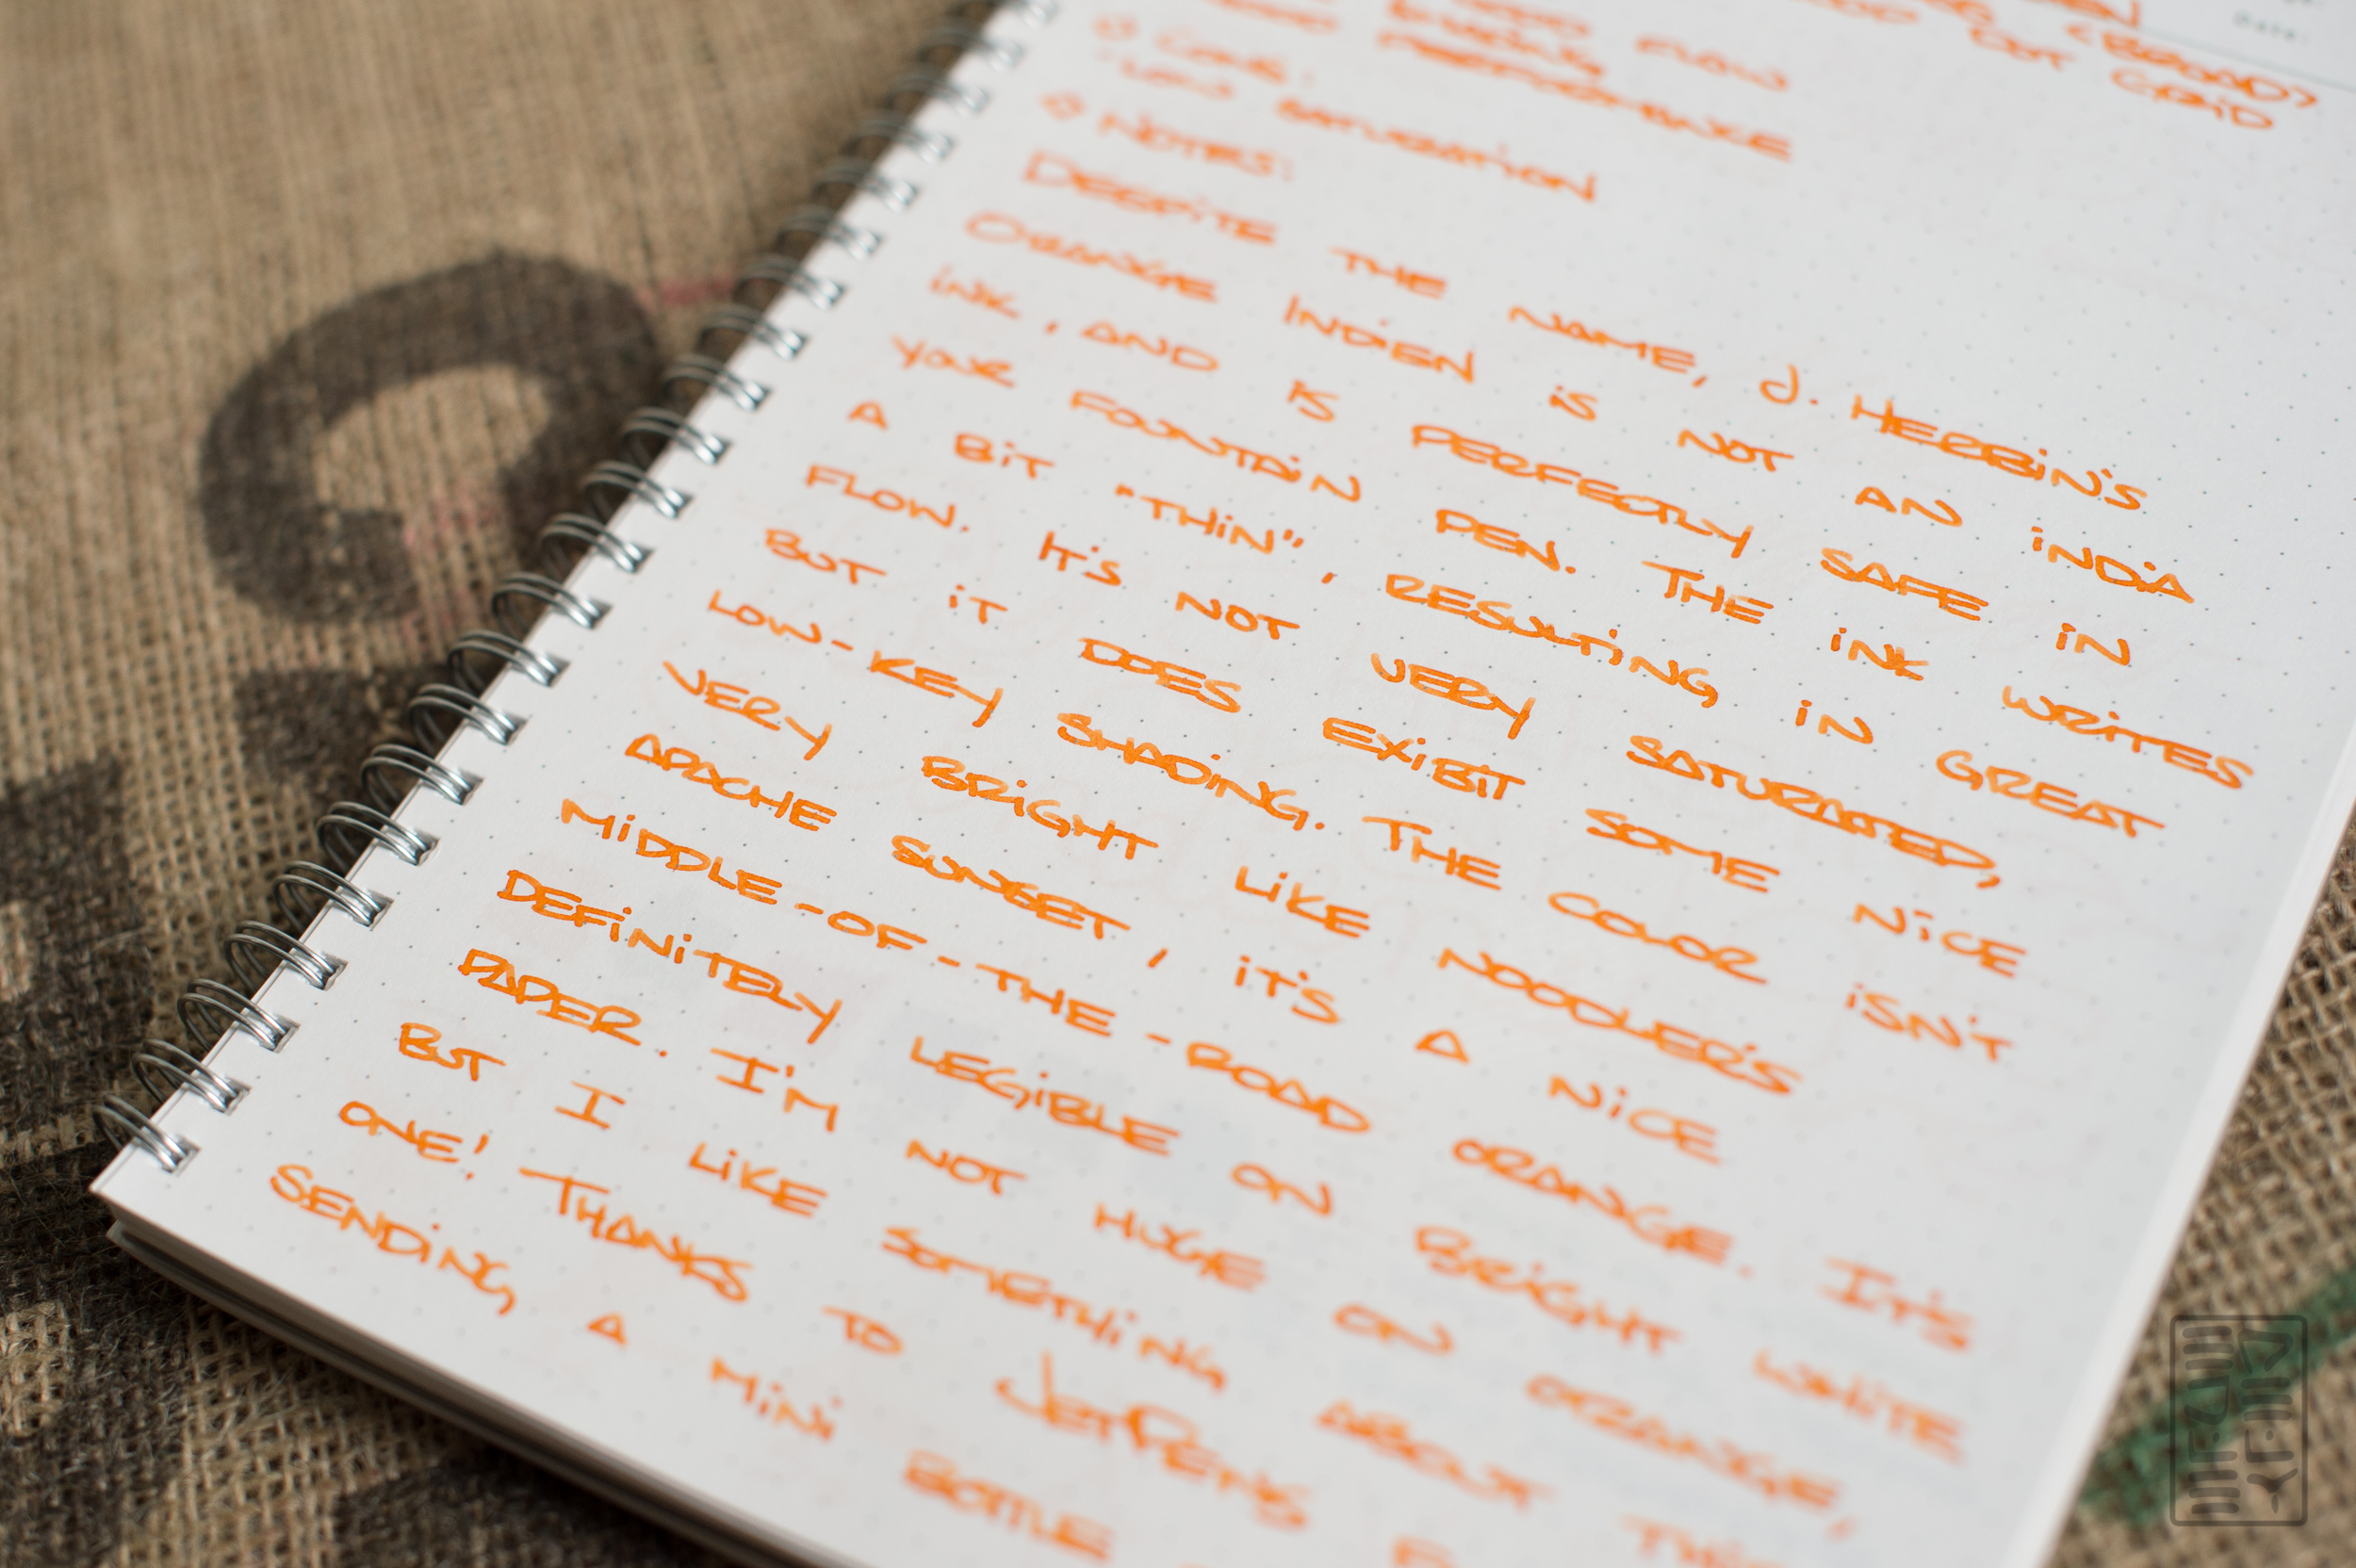 DATE:
(BROAD)
DOT GRID
FLOW
PERFORMANCE
CONS:
LOW SATURATION
NOTES:
DESPITE THE NAME, J. HERBIN'S
ORANGE INDIEN IS NOT AN INDIA
INK, AND IS PERFECTLY SAFE IN
YOUR FOUNTAIN PEN. THE INK WRITES
A BIT "THIN", RESULTING IN GREAT
FLOW. IT'S NOT VERY SATURATED,
BUT IT DOES EXIBIT SOME NICE
LOW-KEY SHADING. THE COLOR ISN'T
VERY BRIGHT LIKE NOODLER'S
APACHE SUNSET, IT'S A NICE
MIDDLE-OF-THE-ROAD ORANGE. IT'S
DEFINITELY LEGIBLE ON BRIGHT WHITE
PAPER. I'M NOT HUGE ON ORANGE,
BUT I LIKE SOMETHING ABOUT THIS
ONE! THANKS TO JETPENS
SENDING A MINI BOTTLE